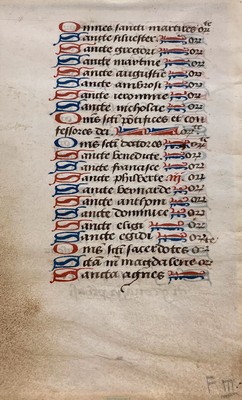 Omnes sancti martires orate
Sancte silvester or
Sancte gregori or
Sancte martine or
Sancte augustine or
Sancte ambrosi or
Sancte ieronime or
Sancte nicholae or
Omnes scti pontifices et con
fessores dei or
Oms scti doctores or
Sancte benedicte or
Sancte francisce or
Sancte philiberte or
Sancte bernarde or
Sancte anthoni or
Sancte dominice or
Sancte eligi or
Sancte egidi or
Oms scti sacerdotes or
Scta m magdalene or
Sancta agnes or